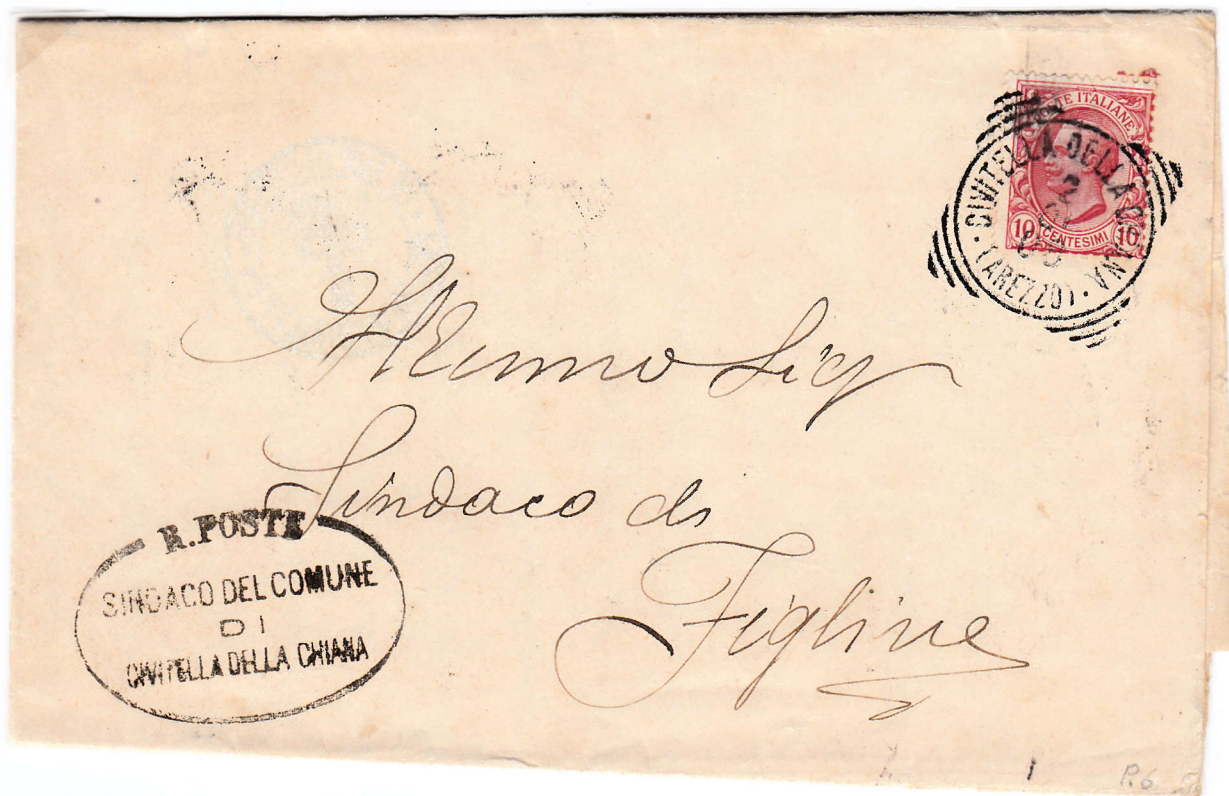 POSTE ITALIANE
10 CENTESIMI 10
CIVITELLA DELLA CHIANA
(AREZZO)
Sig
Sindaco di
Figline
R. POSTE
SINDACO DEL COMUNE
DI
CIVITELLA DELLA CHIANA
R6